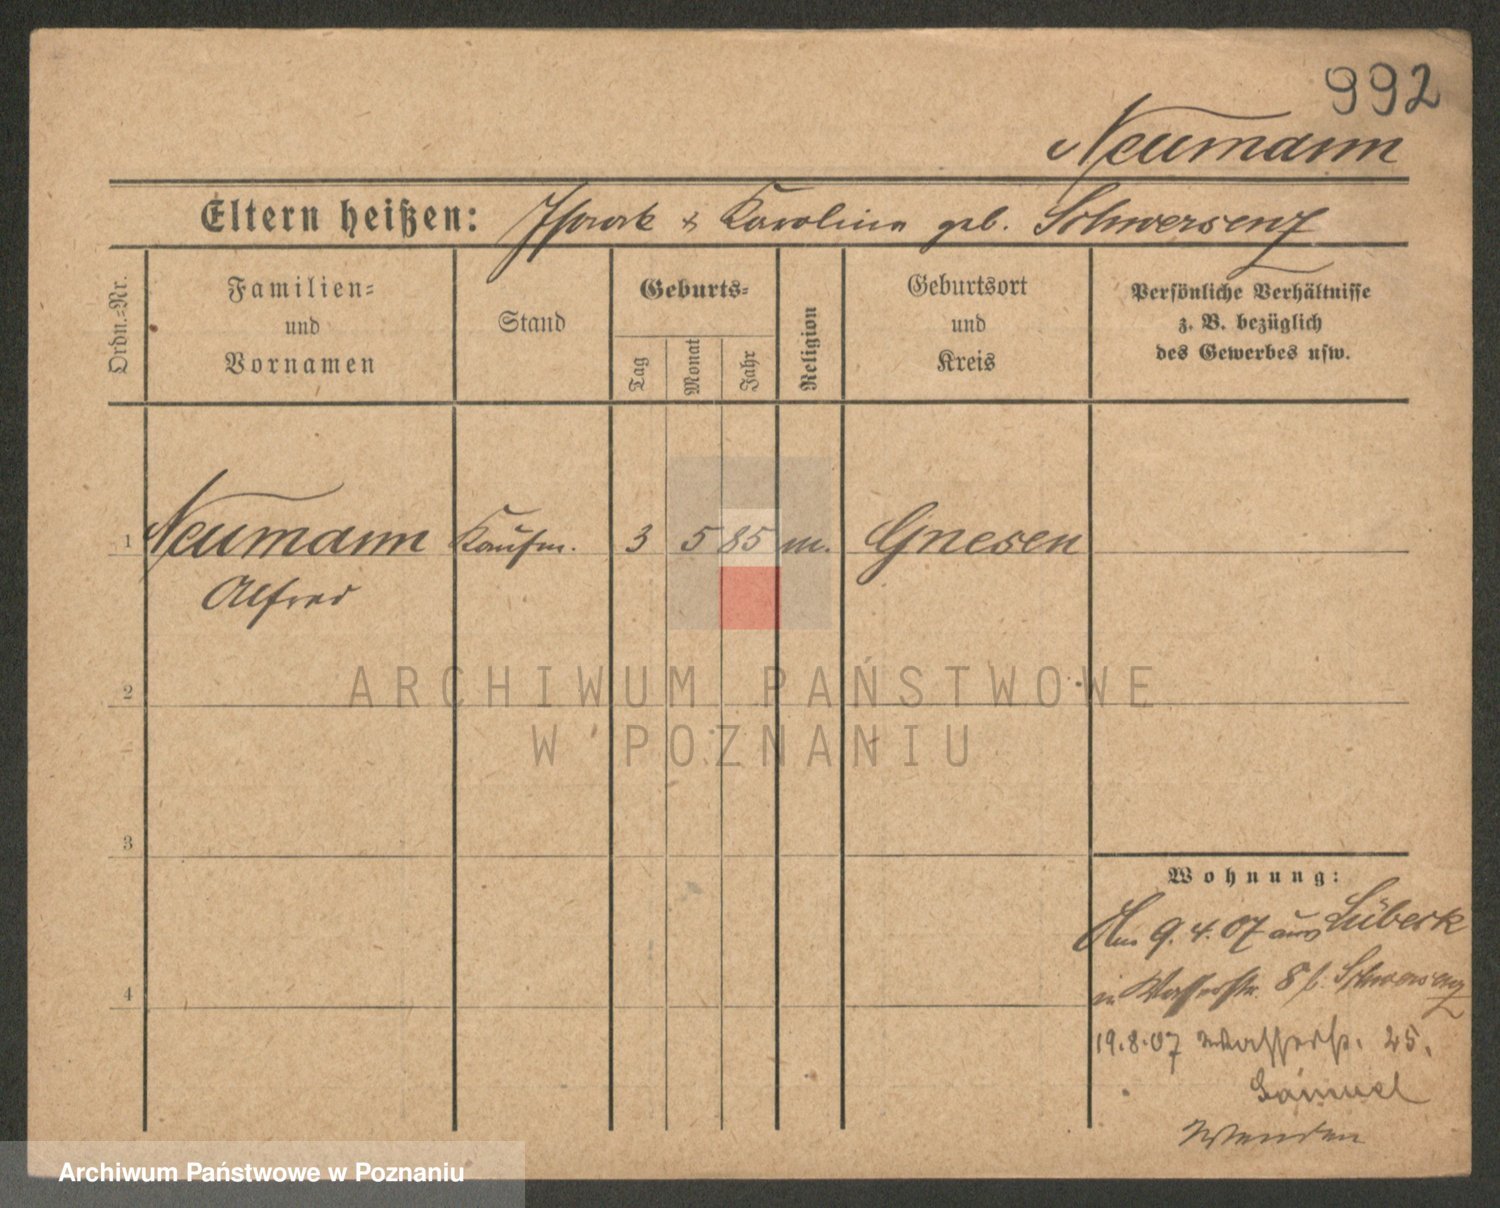 992
Neumann
Eltern heißen: Isaak & Karoline geb. Schwersenz
Ordn.=Nr.
Familien=
und
Vornamen
Stand
Geburts=
Tag
Monat
Jahr
Religion
Geburtsort
und
Kreis
Persönliche Verhältnisse
z. B. bezüglich
des Gewerbes usw.
1 Neumann Kaufm. 3 5 85 m. Gnesen
Alfred
ARCHIWUM PAŃSTWOWE
W POZNANIU
2
3
4
Wohnung:
Am 9.4.07 aus Lübeck
in Wasserstr. 8 b. Schwersenz
19.8.07 Wasserstr. 25.
Samuel
Archiwum Państwowe w Poznaniu